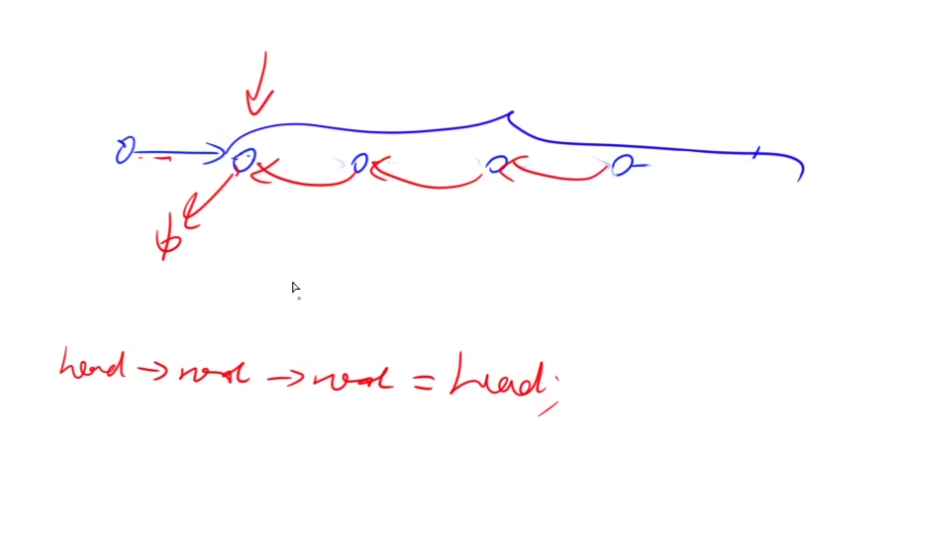 ϕ
head → next → next = head;